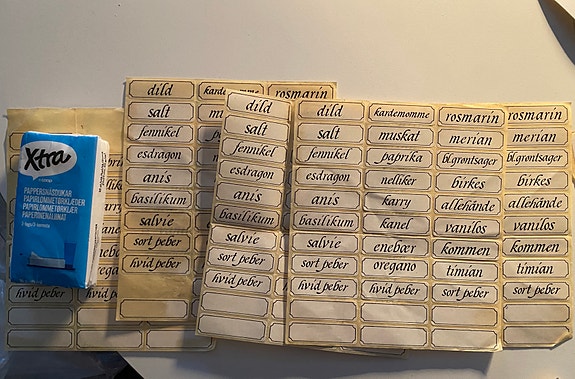 X-tra
PAPPERSNÄSDUKAR
PAPIRLOMMETØRKLÆDER
PAPIRLOMMETØRKLER
PAPERINENÄLIINAT
hvid peber
dild
kardemomme
rosmarin
salt
fennikel
esdragon
anis
basilikum
salvie
sort peber
hvid peber
dild
salt
fennikel
esdragon
anis
basilikum
salvie
sort peber
hvid peber
dild kardemomme rosmarin rosmarin
salt muskat merian merian
fennikel paprika bl.grøntsager bl.grøntsager
esdragon nelliker birkes birkes
anis karry allehånde allehånde
basilikum kanel vanilos vanilos
salvie enebær kommen kommen
sort peber oregano timian timian
hvid peber hvid peber sort peber sort peber